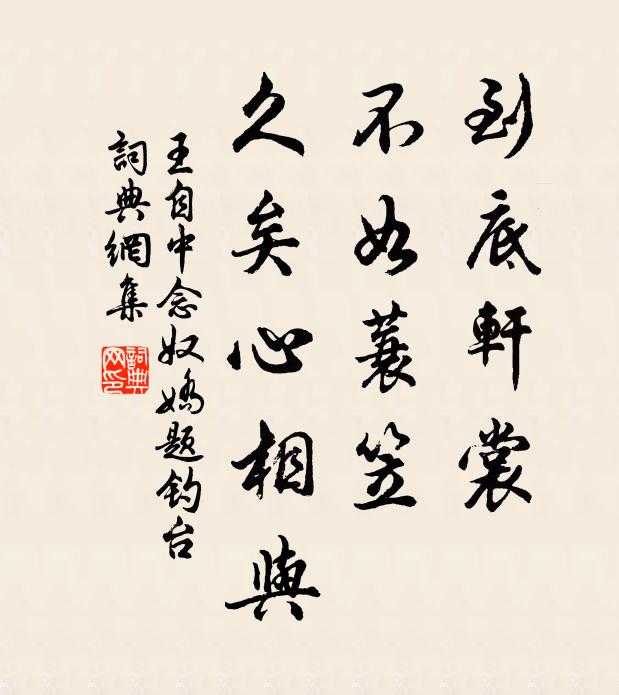 到底軒裳
不如蓑笠
久矣心相與
王自中念奴嬌題釣台
詞典網集
詞典网印